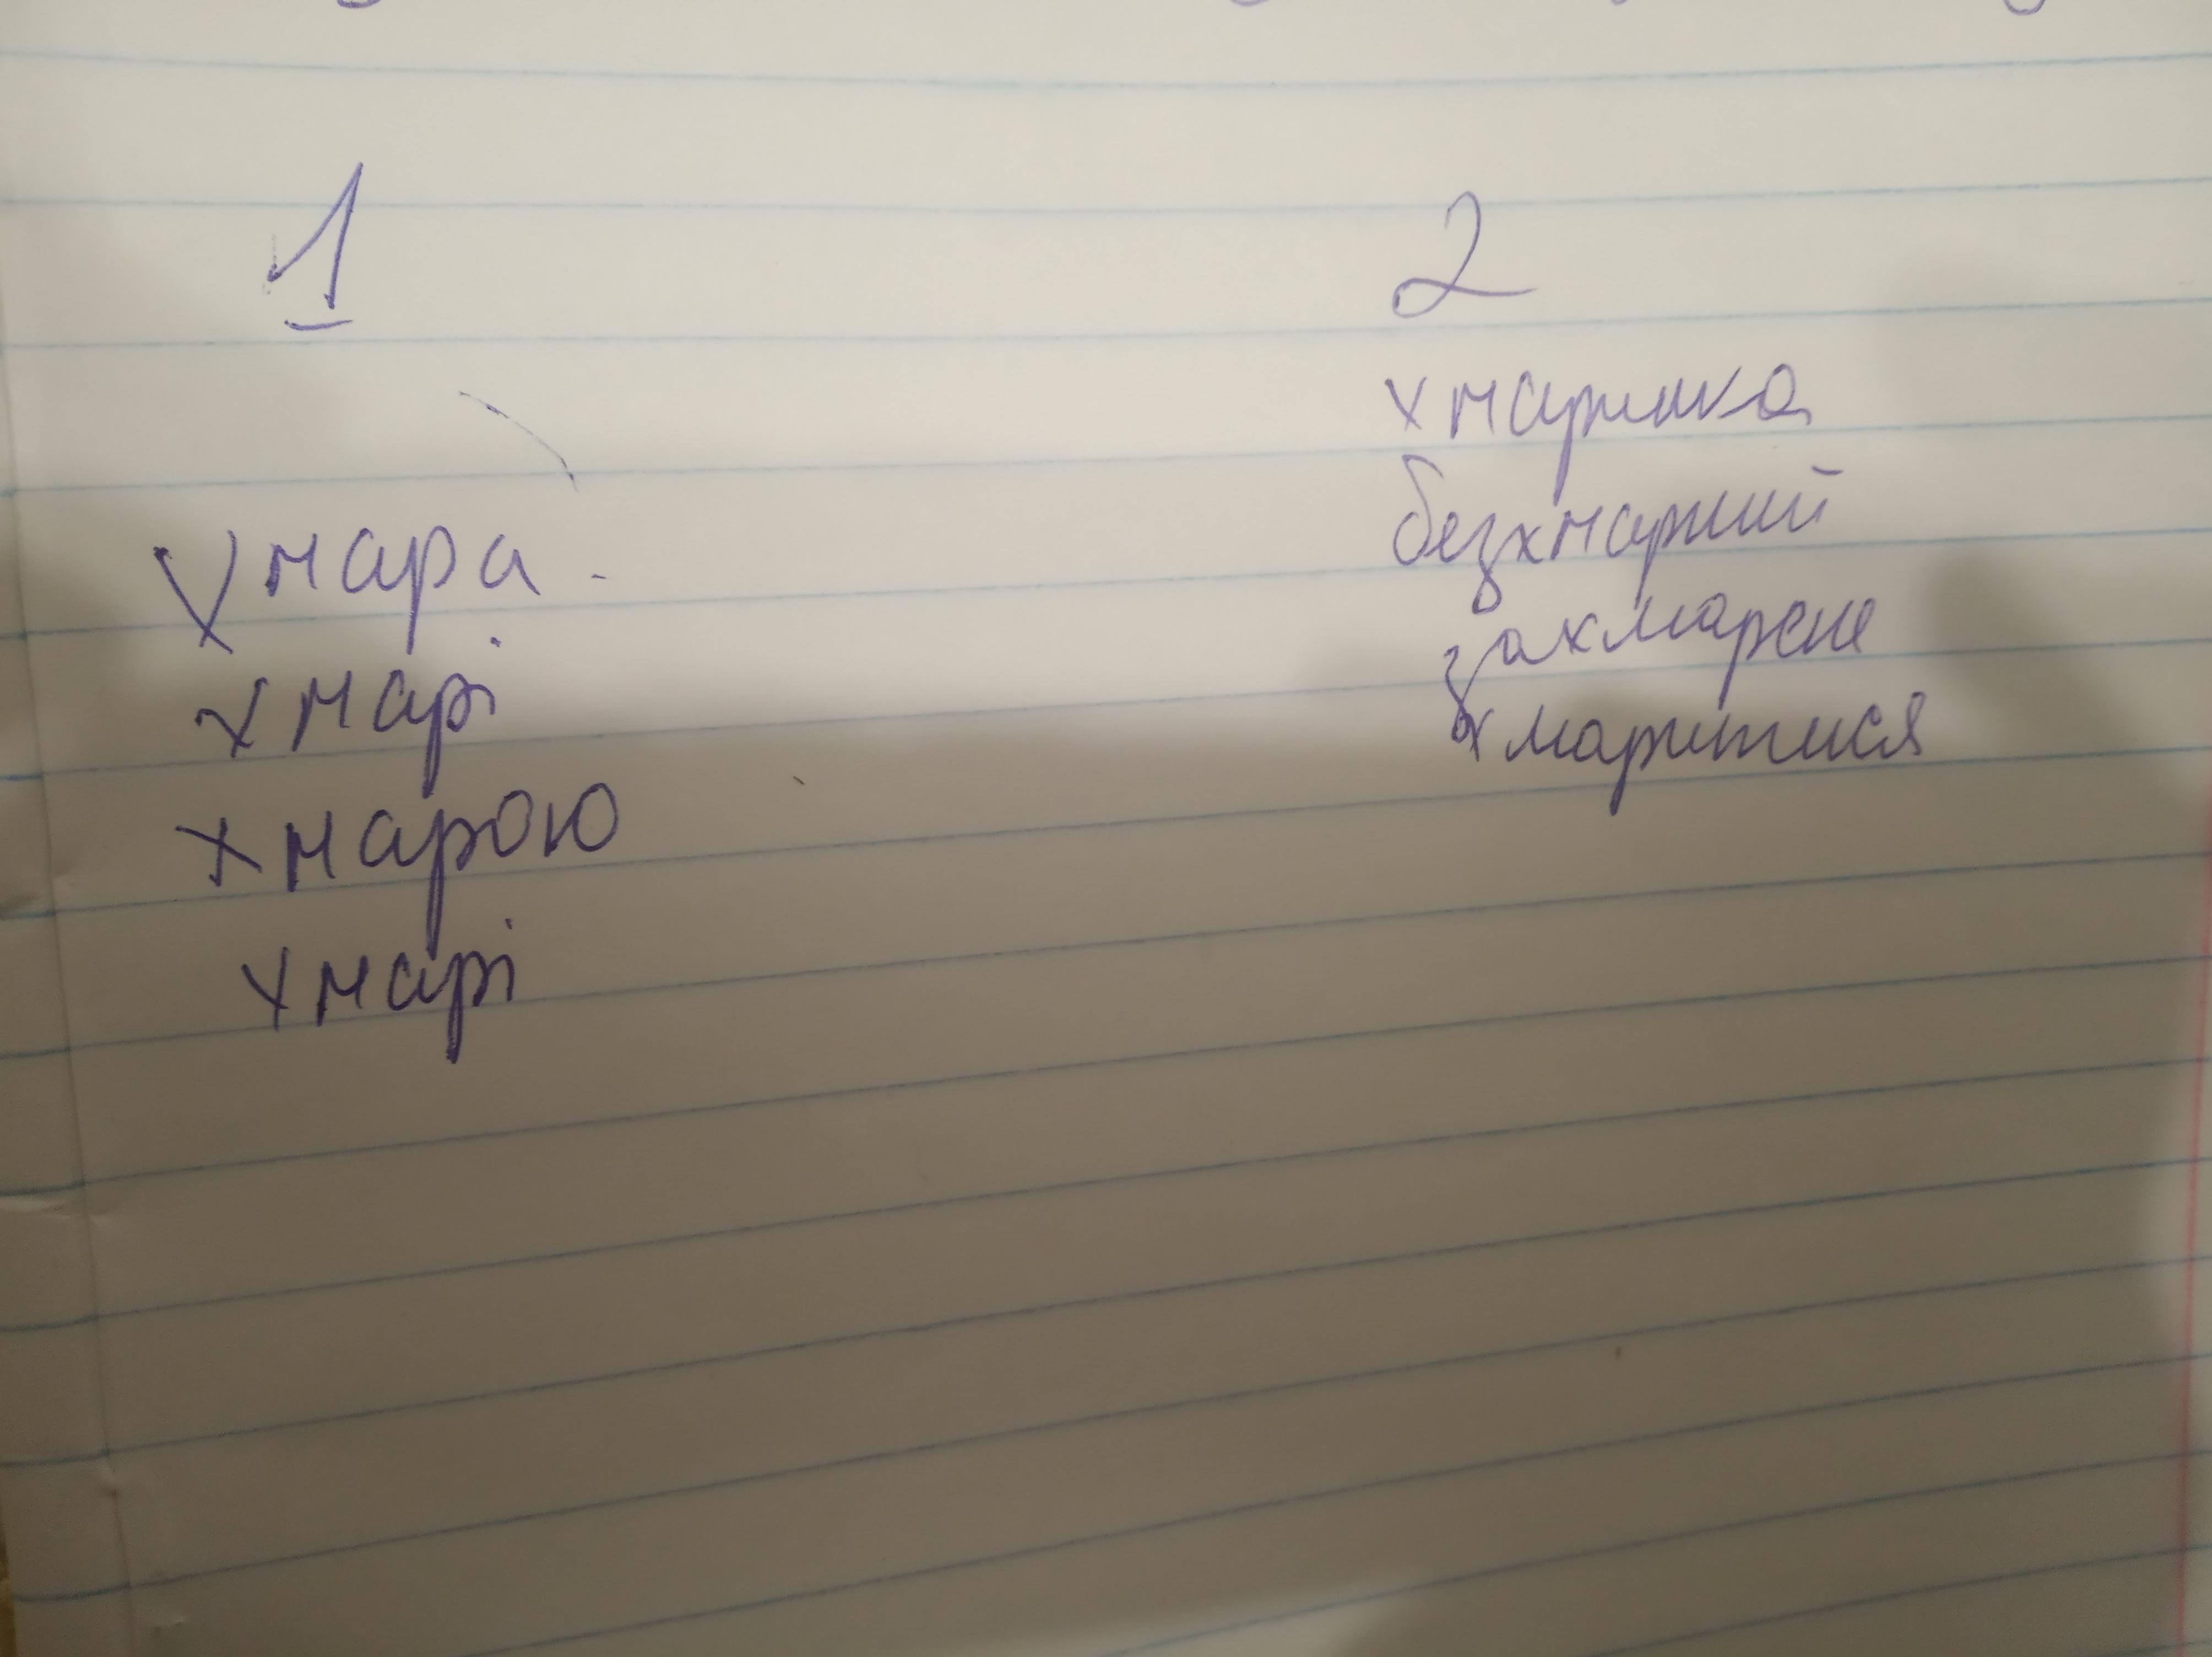 1
хмара
хмарі
хмарою
хмарі
2
хмаринка
безхмарний
захмарене
хмаритися